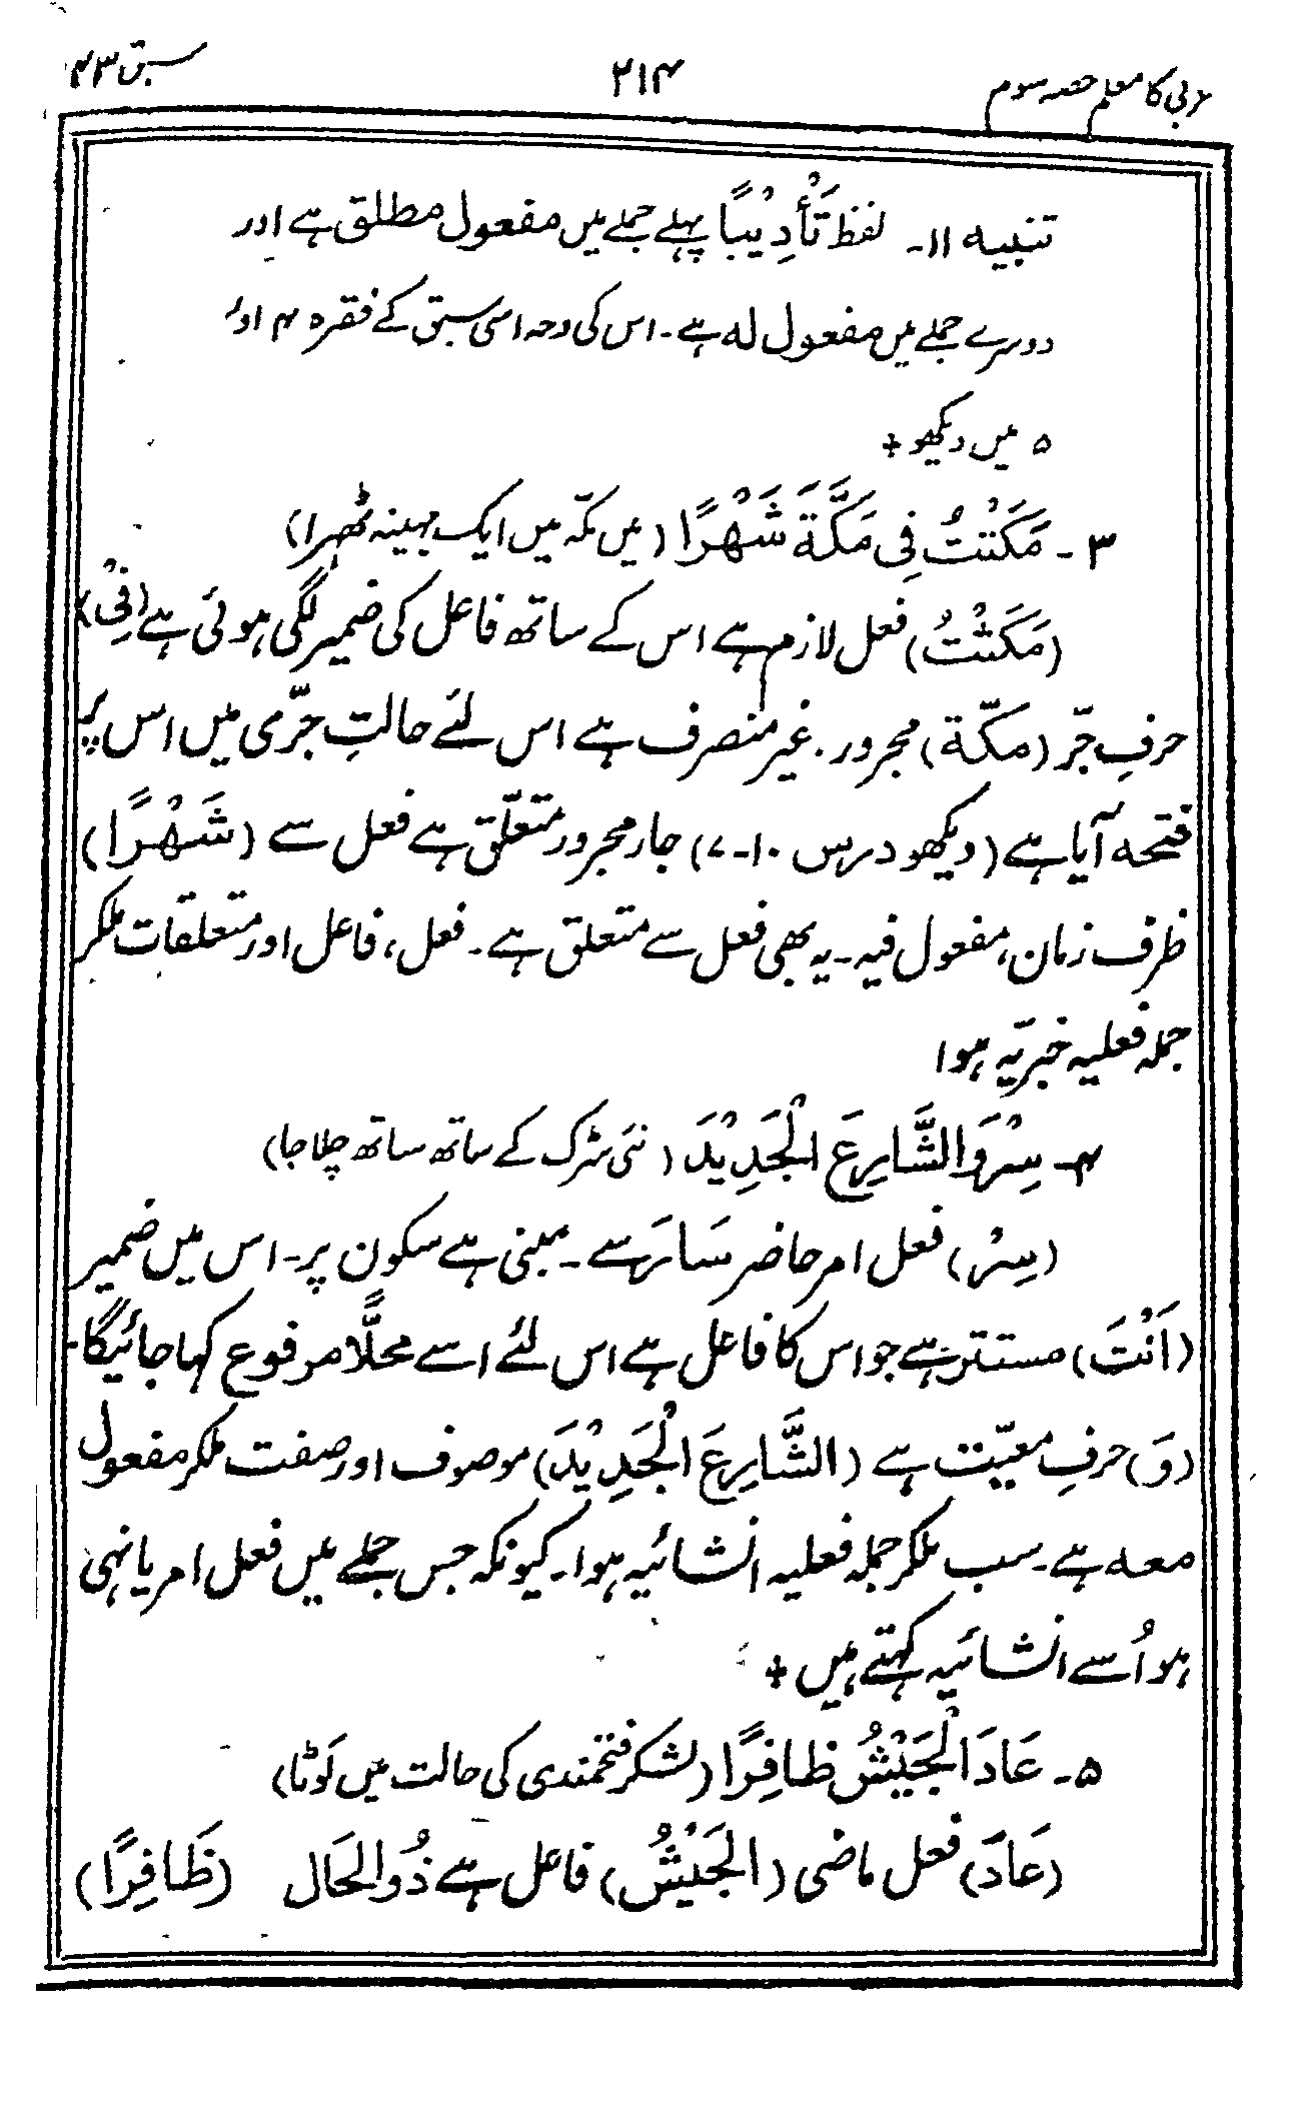 عربی کا معلم حصہ سوم
۲۱۴
سبق ۴۳
تنبیہ ۱۱۔ لفظ تَأْدِيْبًا پہلے جملے میں مفعول مطلق ہے اور
دوسرے جملے میں مفعول لہ ہے۔ اس کی وجہ اسی سبق کے فقرہ ۴ اور
۵ میں دیکھو +
۳۔ مَكَثْتُ فِي مَكَّةَ شَهْرًا (میں مکّہ میں ایک مہینہ ٹھہرا)
(مَكَثْتُ) فعل لازم ہے اس کے ساتھ فاعل کی ضمیر لگی ہوئی ہے (فِيْ)
حرفِ جرّ (مكّة) مجرور۔ غیر منصرف ہے اس لئے حالتِ جرّی میں اس پر
فتحہ آیا ہے (دیکھو درس ۱۰-۷) جار مجرور متعلّق ہے فعل سے (شَهْرًا)
ظرف زمان، مفعول فیہ۔ یہ بھی فعل سے متعلق ہے۔ فعل، فاعل اور متعلقات ملکر
جملہ فعلیہ خبریّہ ہوا
۴۔ سِرْ وَالشَّارِعَ الْجَدِيْدَ (نئی سڑک کے ساتھ ساتھ چلا جا)
(سِرْ) فعل امر حاضر سَارَ سے۔ مبنی ہے سکون پر۔ اس میں ضمیر
(اَنْتَ) مستتر ہے جو اس کا فاعل ہے اس لئے اسے محلًّا مرفوع کہا جائیگا۔
(وَ) حرفِ معیّت ہے (الشَّارِعَ الْجَدِيْدَ) موصوف اور صفت ملکر مفعول
معہ ہے۔ سب ملکر جملہ فعلیہ انشائیہ ہوا۔ کیونکہ جس جملے میں فعل امر یا نہی
ہو اُسے انشائیہ کہتے ہیں +
۵۔ عَادَ الْجَيْشُ ظافِرًا (لشکر فتحمندی کی حالت میں لَوٹا)
(عَادَ) فعل ماضی (الجَيْشُ) فاعل ہے ذُوالحَال (ظَافِرًا)